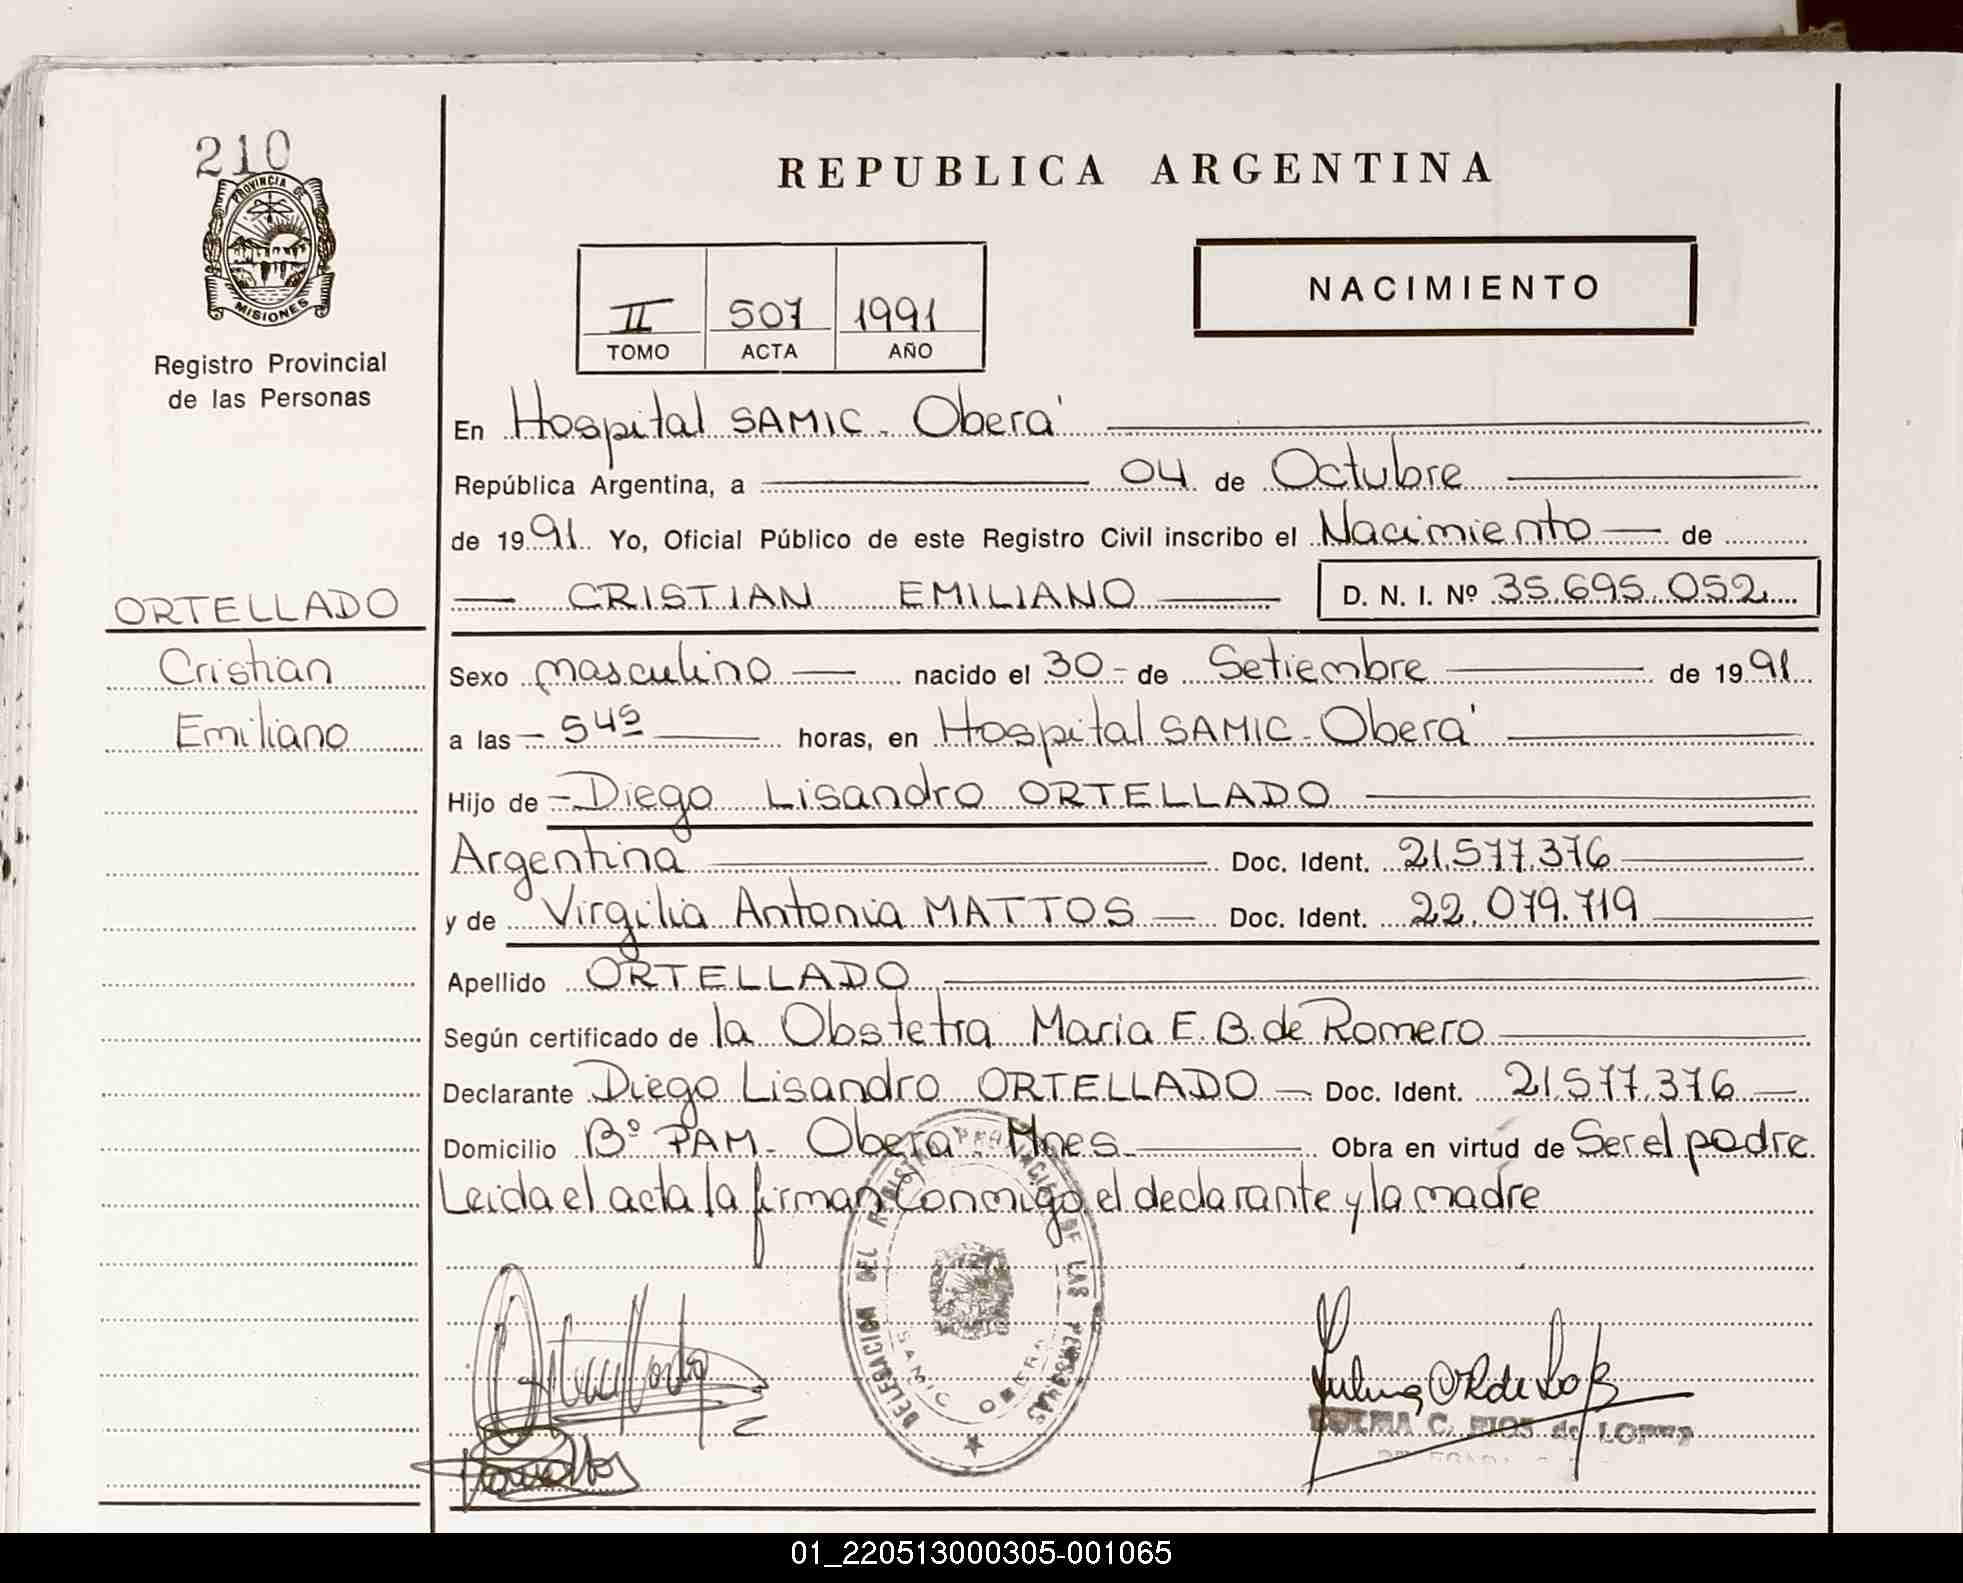 210
PROVINCIA DE
MISIONES
Registro Provincial
de las Personas
ORTELLADO
Cristian
Emiliano
REPUBLICA ARGENTINA
II 507 1991
TOMO ACTA AÑO
NACIMIENTO
En Hospital SAMIC - Oberá
República Argentina, a 04 de Octubre
de 1991 Yo, Oficial Público de este Registro Civil inscribo el Nacimiento de
CRISTIAN EMILIANO D. N. I. Nº 35.695.052
Sexo masculino nacido el 30 - de Setiembre de 1991
a las 5 45 horas, en Hospital SAMIC - Oberá
Hijo de Diego Lisandro ORTELLADO
Argentina Doc. Ident. 21.577.376
y de Virgilia Antonia MATTOS Doc. Ident. 22.079.719
Apellido ORTELLADO
Según certificado de la Obstetra Maria E. B. de Romero
Declarante Diego Lisandro ORTELLADO Doc. Ident. 21.577.376
Domicilio Bº PAM - Obera - Mnes Obra en virtud de Ser el padre
Leida el acta la firman conmigo el declarante y la madre
DELEGACION DEL REGISTRO PROVINCIAL DE LAS PERSONAS
SAMIC OBERA
C. RIOS de LOPEZ
01_220513000305-001065